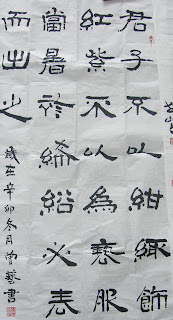 君子不以紺緅飾
紅紫不以為褻服
當暑袗絺綌必表
而出之
歲在辛卯冬月曾藝書